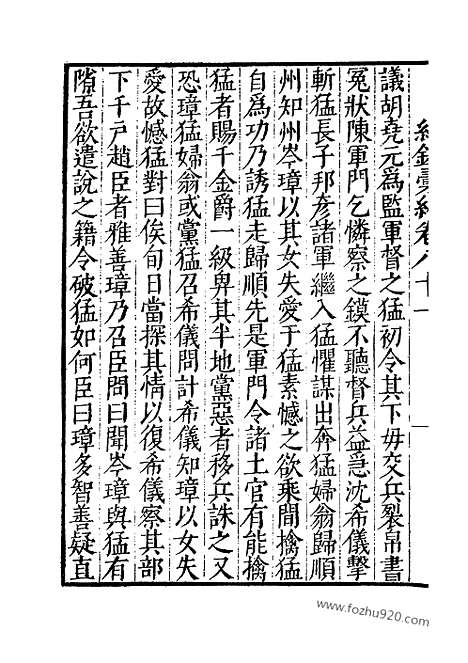 紀錄彙編卷八十一
議胡堯元爲監軍督之猛初令其下毋交兵裂帛書
冤狀陳軍門乞憐察之鏌不聽督兵益急沈希儀擊
斬猛長子邦彥諸軍繼入猛懼謀出奔猛婦翁歸順
州知州岑璋以其女失愛于猛素憾之欲乗間擒猛
自爲功乃誘猛走歸順先是軍門令諸土官有能擒
猛者賜千金爵一級畀其半地黨惡者移兵誅之又
恐璋猛婦翁或黨猛召希儀問計希儀知璋以女失
愛故憾猛對曰俟旬日當探其情以復希儀察其部
下千戸趙臣者雅善璋乃召臣問曰聞岑璋與猛有
隙吾欲遣說之籍令破猛如何臣曰璋多智善疑直
www.fozhu920.com